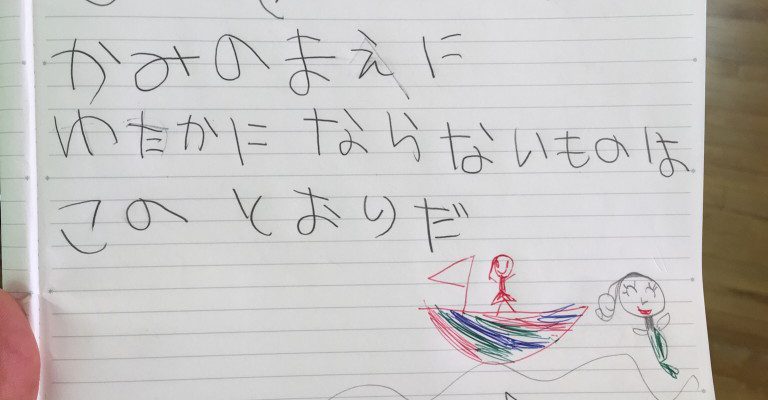 かみのまえに
ゆたかに ならないものは
このとおりだ